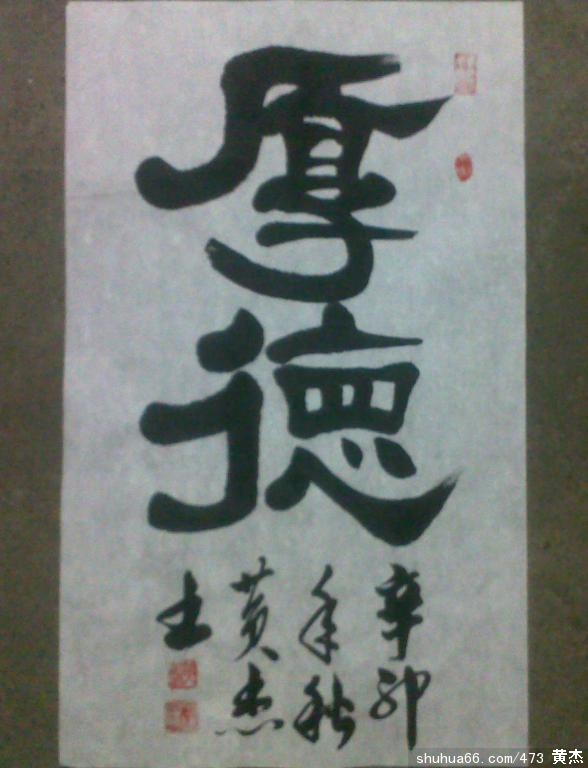 厚德
辛卯
年秋
黄杰
shuhua66.com/473 黄杰